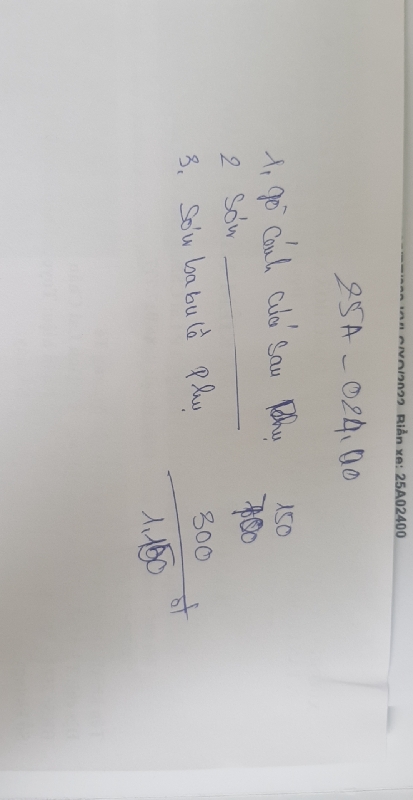 Biển xe: 25A02400
25A - 024.00
1, gò cánh cửa sau phụ 150
2 Sơn ——— 700
3. Sơn babulê phụ 300
1,150 đ